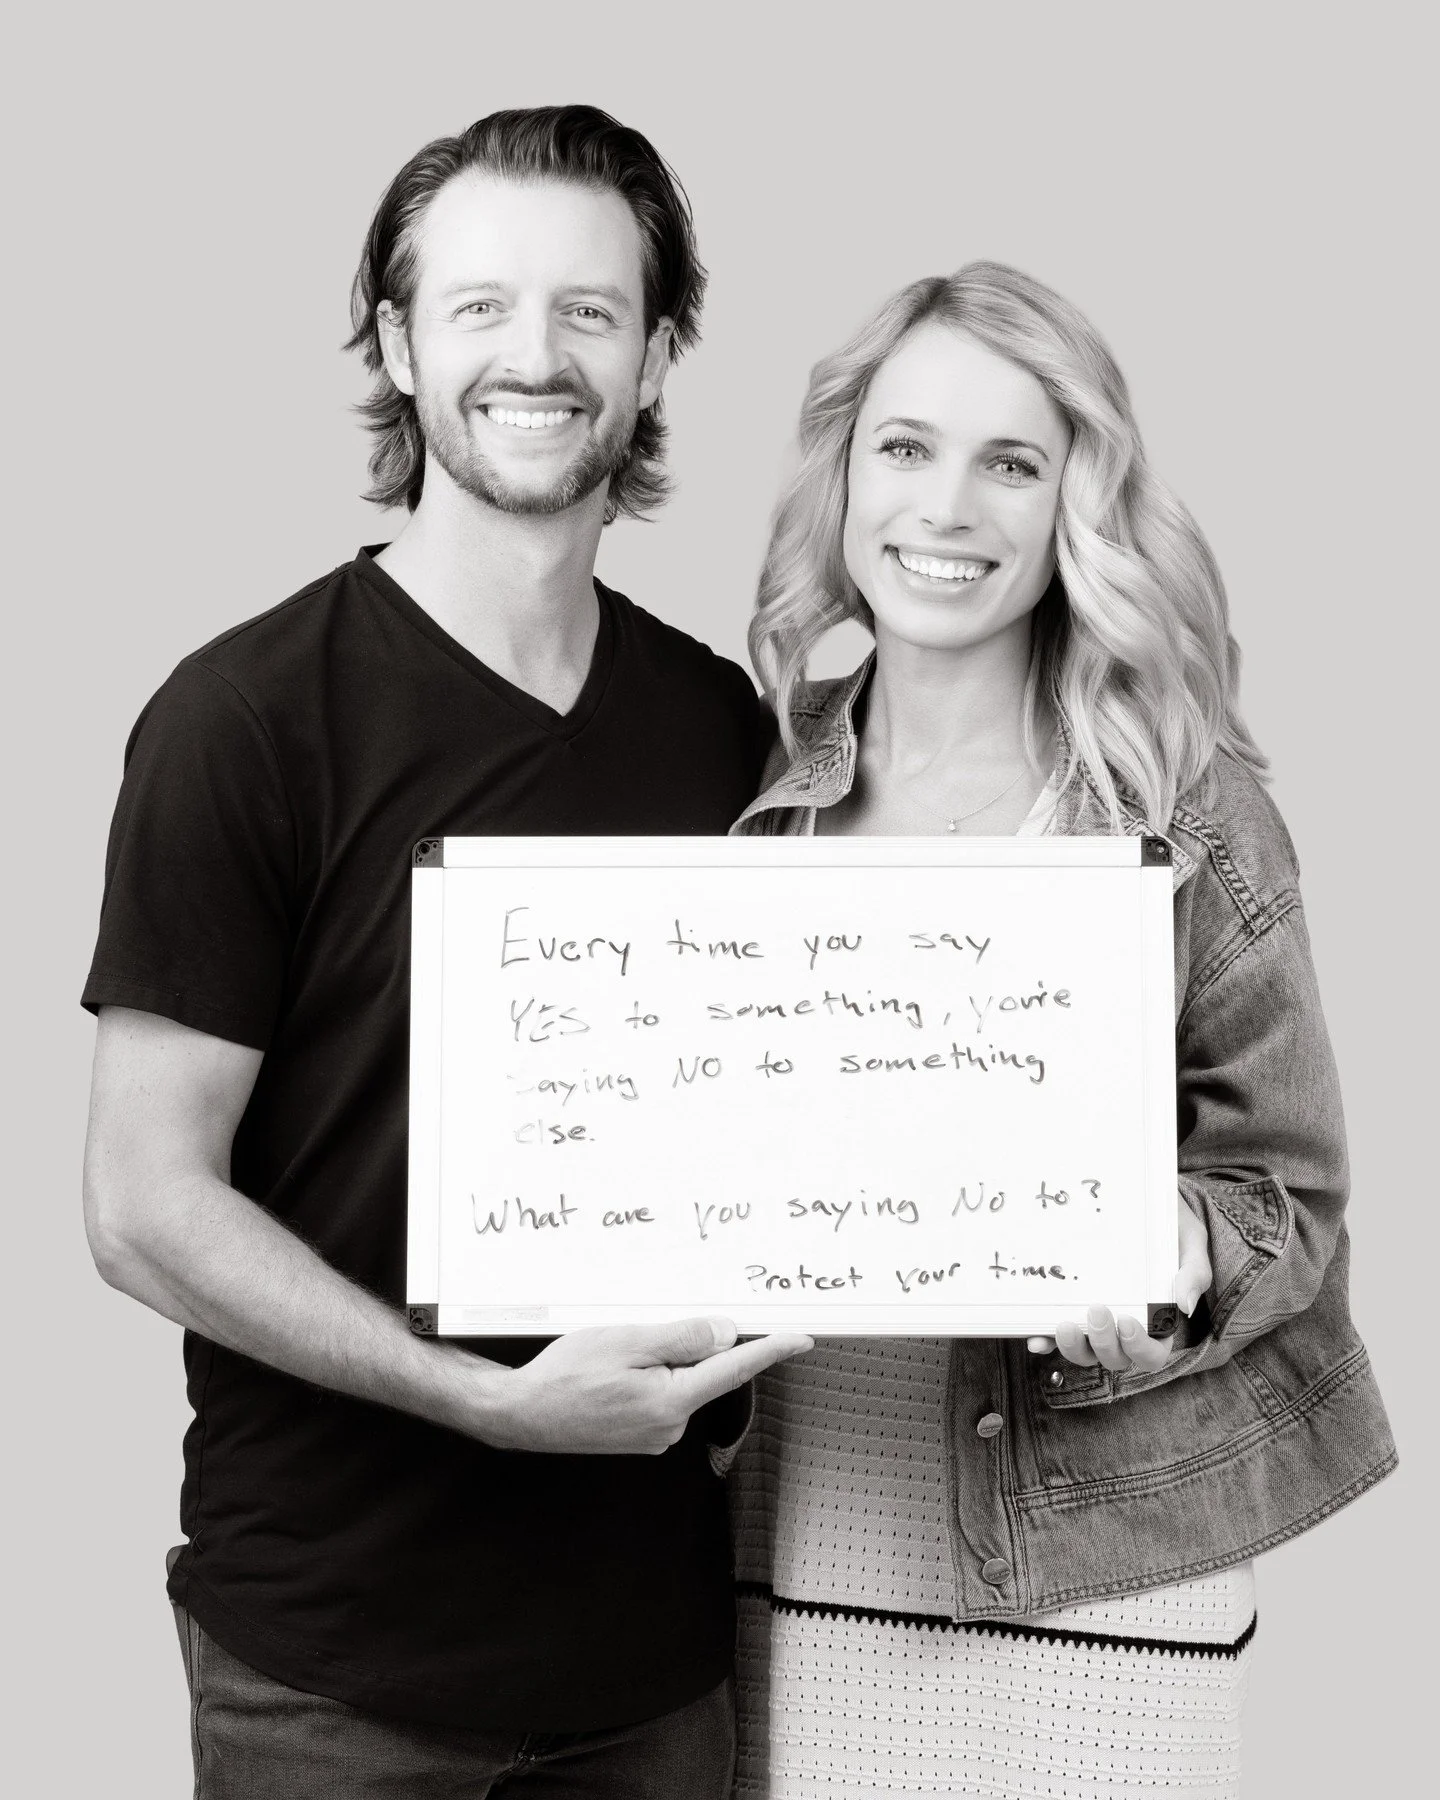 Every time you say
YES to something, you're
saying NO to something
else.
What are you saying No to?
Protect your time.